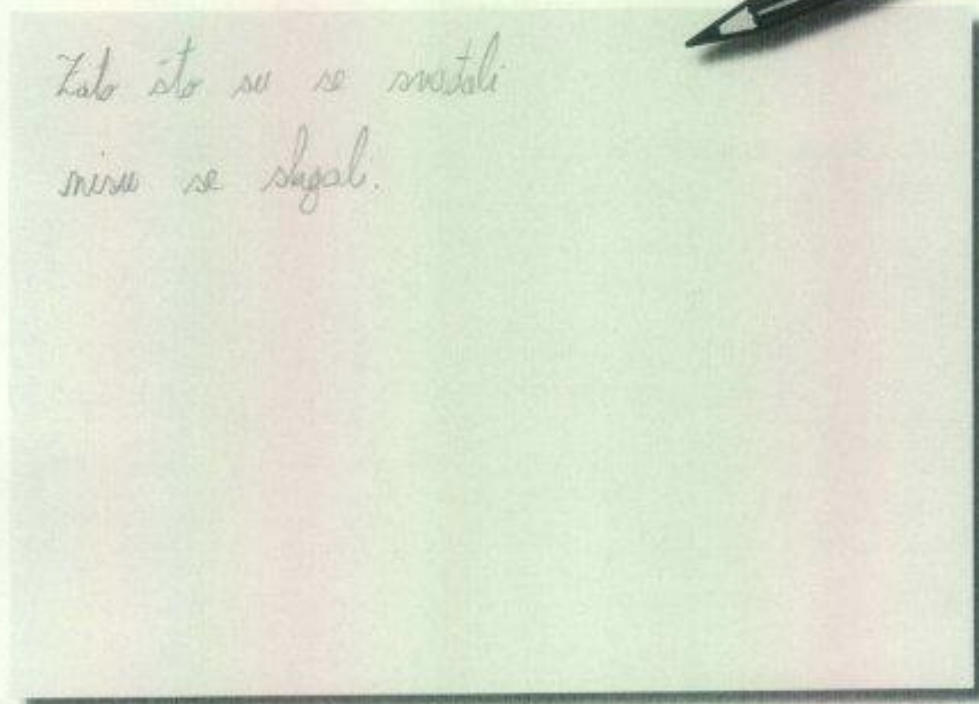 Zato što su se svađali
nisu se slagali.